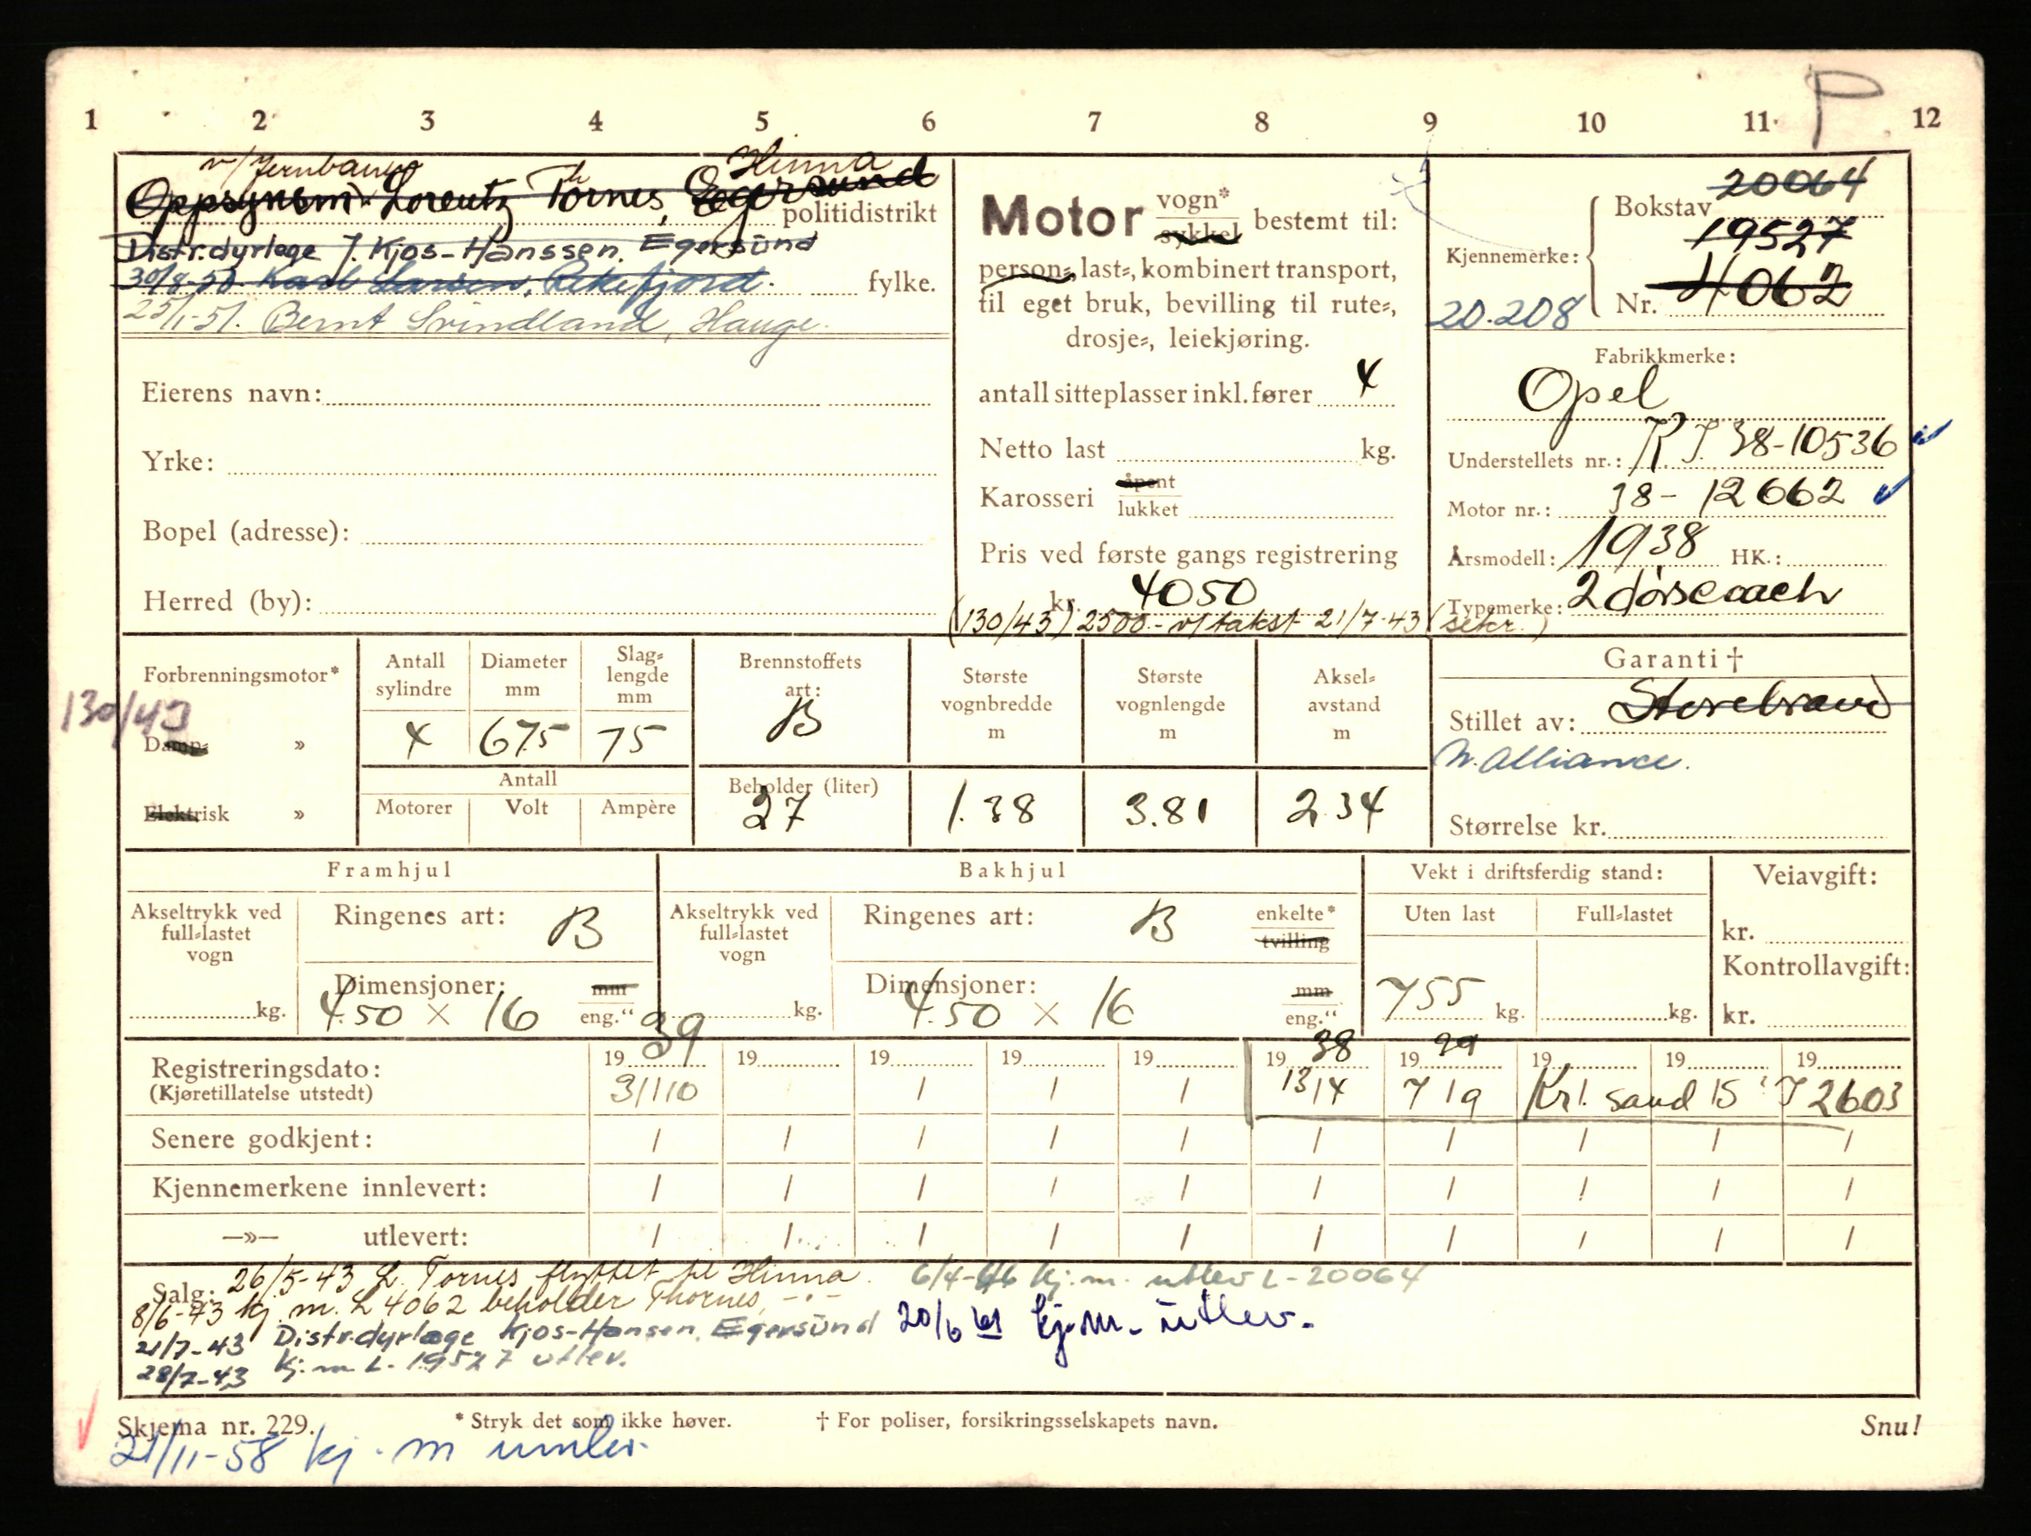 P
1 2 3 4 5 6 7 8 9 10 11 12
v/Jernbanen Hinna
Oppsynsm. Lorentz Th Tornes, Egersund
politidistrikt
Distr.dyrlege J. Kjos-Hanssen, Egersund
30/8-50. Karl Larsen, Rekefjord.
fylke.
25/1-51. Bernt Svindland, Hauge.
Eierens navn:
Yrke:
Bopel (adresse):
Herred (by):
Motor vogn* sykkel bestemt til:
person-, last-, kombinert transport,
til eget bruk, bevilling til rute-,
drosje-, leiekjøring.
antall sitteplasser inkl. fører 4
Netto last kg.
Karosseri åpent lukket
Pris ved første gangs registrering
kr. 4050
(130/43) 2500.- v/takst 21/7-43 (sekr.)
20064
Bokstav
19527
Kjennemerke:
Nr. 4062
20.208
Fabrikkmerke:
Opel
Understellets nr.: K.J. 38-10536
Motor nr.: 38-12662
Årsmodell: 1938 HK.:
Typemerke: 2 dørs coach
Forbrenningsmotor*
130/43
Damp- »
Elektrisk »
Antall sylindre 4
Diameter mm 67.5
Slaglengde mm 75
Antall
Motorer Volt Ampère
Brennstoffets art: B
Beholder (liter) 27
Største vognbredde m 1.38
Største vognlengde m 3.81
Akselavstand m 2.34
Garanti †
Stillet av: Storebrand
N. Alliance.
Størrelse kr.
Framhjul
Akseltrykk ved full-lastet vogn kg.
Ringenes art: B
Dimensjoner: 4.50 × 16 mm eng."
Bakhjul
Akseltrykk ved full-lastet vogn kg.
Ringenes art: B enkelte* tvilling
Dimensjoner: 4.50 × 16 mm eng."
Vekt i driftsferdig stand:
Uten last 755 kg.
Full-lastet kg.
Veiavgift:
kr.
Kontrollavgift:
kr.
Registreringsdato: 19 39 19 19 19 19 19 38 19 39 19 19 19
(Kjøretillatelse utstedt) 31/10 / / / 13/4 7/9 Kr. sand 15 J 2603
Senere godkjent: / / / / / / / / / /
Kjennemerkene innlevert: / / / / / / / / / /
—»— utlevert: / / / / / / / / / /
Salg: 26/5-43 L. Tornes flyttet til Hinna. 6/4-46 kj.m. utlev L-20064
8/6-43 kj.m. L 4062 beholder Thornes, -"-
21/7-43 Distr.dyrlege Kjos-Hansen, Egersund 20/6 61 kj.m. utlev.
28/7-43 kj.m L-19527 utlev.
Skjema nr. 229. * Stryk det som ikke høver. † For poliser, forsikringsselskapets navn. Snu!
21/11-58 kj.m innlev.